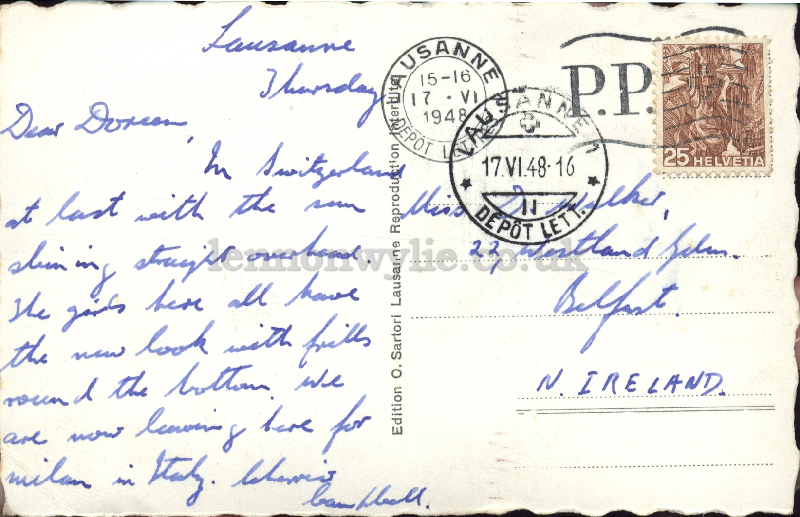 Lausanne
Thursday
Dear Doreen,
In Switzerland
at last with the sun
shining straight overhead.
The girls here all have
the new look with frills
round the bottom. We
are now leaving here for
milan in Italy. Cheerio
Campbell.
Edition O. Sartori Lausanne Reproduction interdite
LAUSANNE
15-16
17 · VI
1948
DEPOT LETTRES
LAUSANNE 1
17.VI.48-16
II
DEPOT LETT.
P.P.
25 HELVETIA
Miss D. Walker,
22, Westland Gdns.
Belfast.
N. IRELAND.
lennonwylie.co.uk